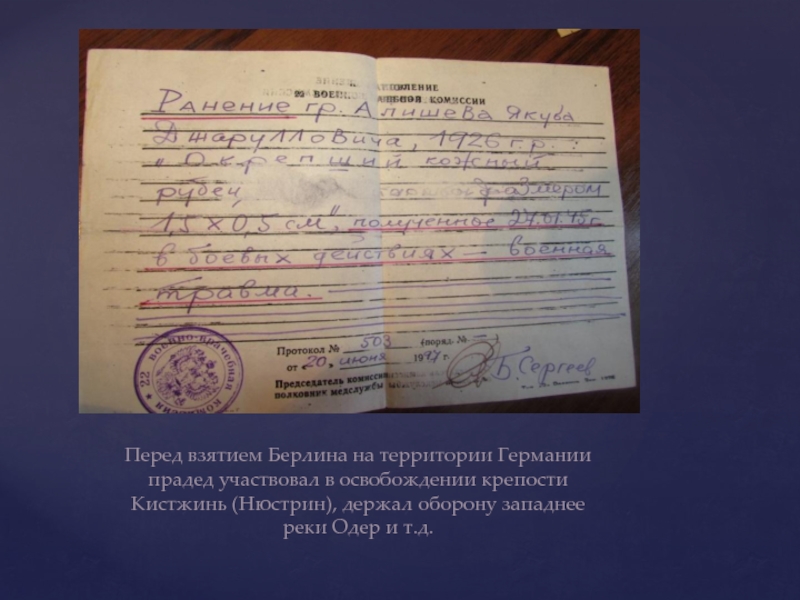 ПОСТАНОВЛЕНИЕ
22 ВОЕННО-ВРАЧЕБНОЙ КОМИССИИ
Ранение гр. Алишева Якуба
Джарулловича, 1926 г.р. :
„Окрепший кожный
рубец размером
1,5 х 0,5 см", полученное
в боевых действиях – военная
травма.
Протокол № 503 (поряд. № )
от « 20 » июня 1997 г.
Председатель комиссии
полковник медслужбы Б Сергеев
22 ВОЕННО-ВРАЧЕБНАЯ КОМИССИЯ
Перед взятием Берлина на территории Германии
прадед участвовал в освобождении крепости
Кистжинь (Нюстрин), держал оборону западнее
реки Одер и т.д.